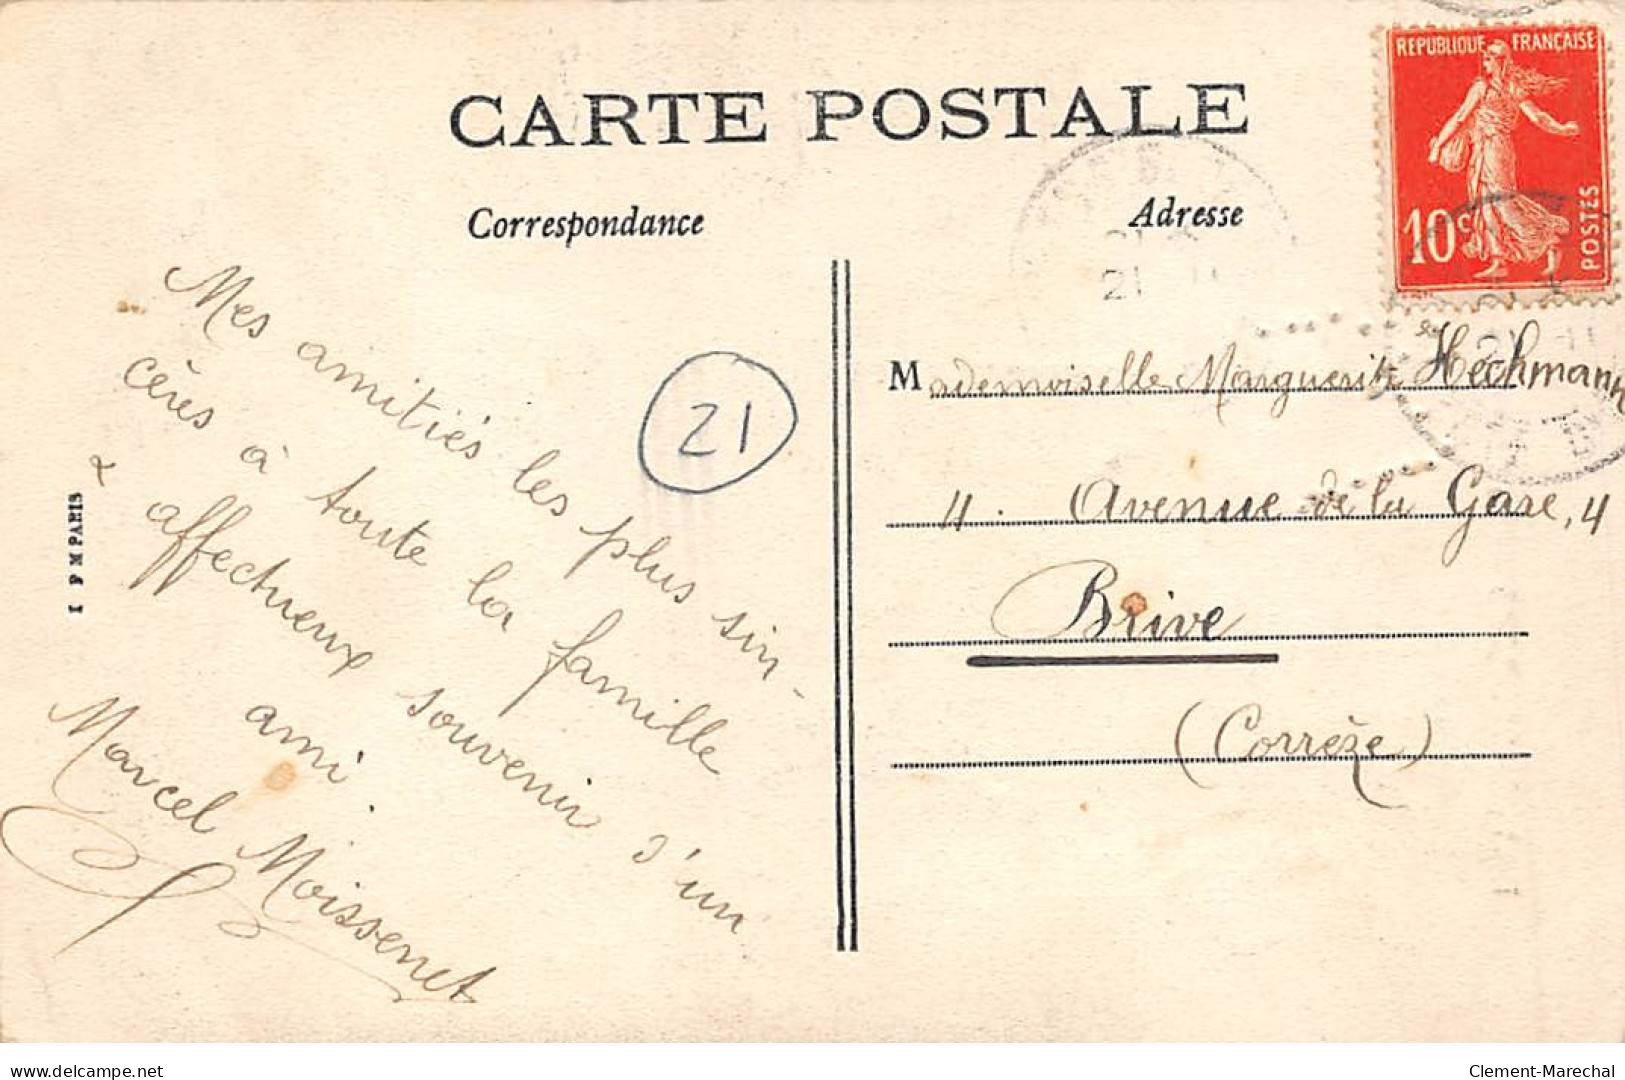 CARTE POSTALE
Correspondance
Adresse
REPUBLIQUE FRANÇAISE
10c
POSTES
21
Mes amitiés les plus sin-
cères à toute la famille
& affectueux souvenir d'un
ami.
Marcel Moissenet
I P M PARIS
Mademoiselle Marguerite Heckmann
4. Avenue de la Gare, 4
Brive
(Corrèze)
delcampe.net
Clement-Marechal